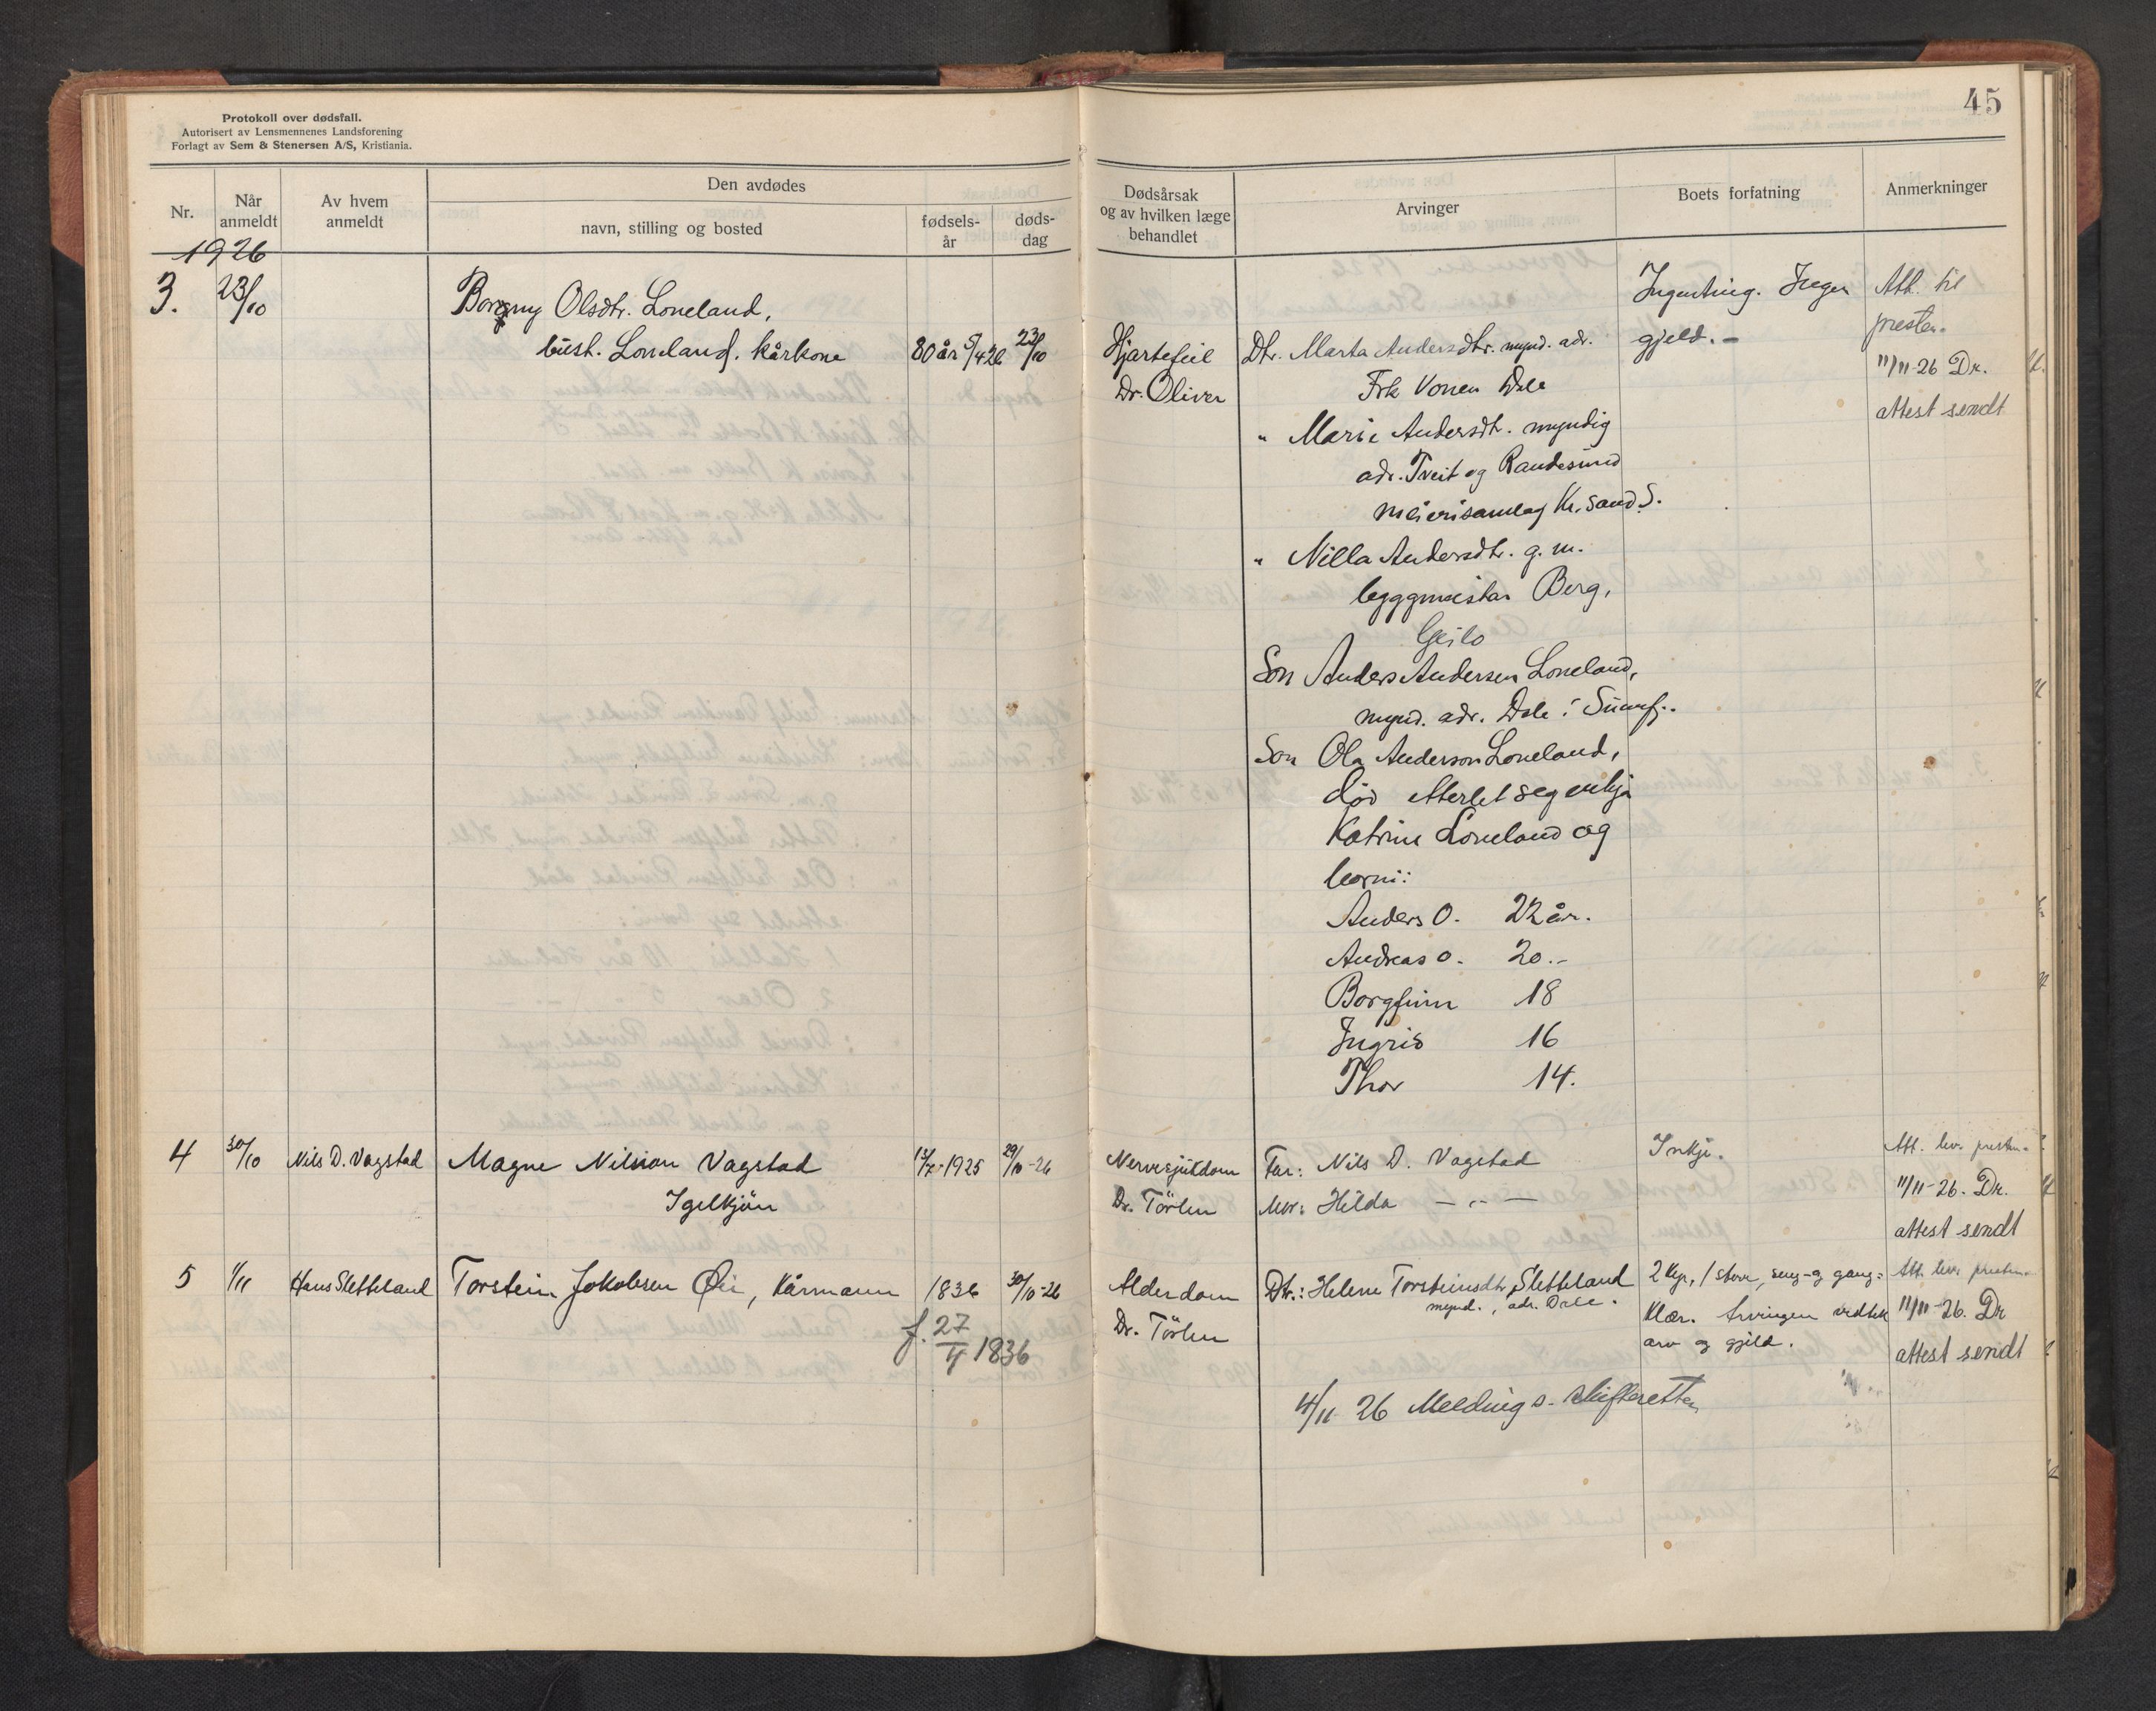 Protokoll over dødsfall.
Autorisert av Lensmennenes Landsforening
Forlagt av Sem & Stenersen A/S, Kristiania.
45
Nr.
Når anmeldt
Av hvem anmeldt
Den avdødes
navn, stilling og bosted
fødsels-år
døds-dag
Dødsårsak og av hvilken læge behandlet
Arvinger
Boets forfatning
Anmerkninger
1926
3.
23/10
Borgny Olsdtr. Loneland,
bust. Loneland. kårkone
80 år 5/4 26
23/10
Hjartefeil
Dr. Oliver
Dtr. Marta Andersdtr. mynd. adr.
Frk Vonen Dale
" Marie Andersdtr. myndig
adr. Tveit og Randesund
meierisamlag Kr.sand S.
" Nilla Andersdtr. g. m.
byggmeistar Berg,
Geilo
Son Anders Andersen Loneland,
mynd. adr. Dale i Sunnfj..
Son Ola Anderson Loneland,
død etterlet seg enkja
Katrine Loneland og
borni:
Anders O. 22 år.
Andreas O. 20.-
Borgfinn 18
Ingrid 16
Thor 14.
Ingenting. Ingen
gjeld. -
Att. til
presten.
11/11-26 Dr.
attest sendt
4
30/10
Nils D. Vagstad
Magne Nilsson Vagstad
Igelkjøn
13/7-1925
29/10-26
Nervesjukdom
Dr. Törlen
Far: Nils D. Vagstad
Mor: Hilda — " —
Inkje.
Att. lev. presten.
11/11-26. Dr.
attest sendt
5
1/11
Hans Sletteland
Torstein Jakobsen Øi, Kårmann
1836
f. 27/4 1836
30/10-26
Alderdom
Dr. Törlen
Dtr.: Helene Torsteinsdtr. Sletteland
mynd., adr. Dale.
2 kyr, 1 stove, seng- og gang-
klær. Arvingen vedtek
arv og gjeld.
Att. lev. presten
11/11-26. Dr
attest sendt
4/11 26 Melding s. skifteretten